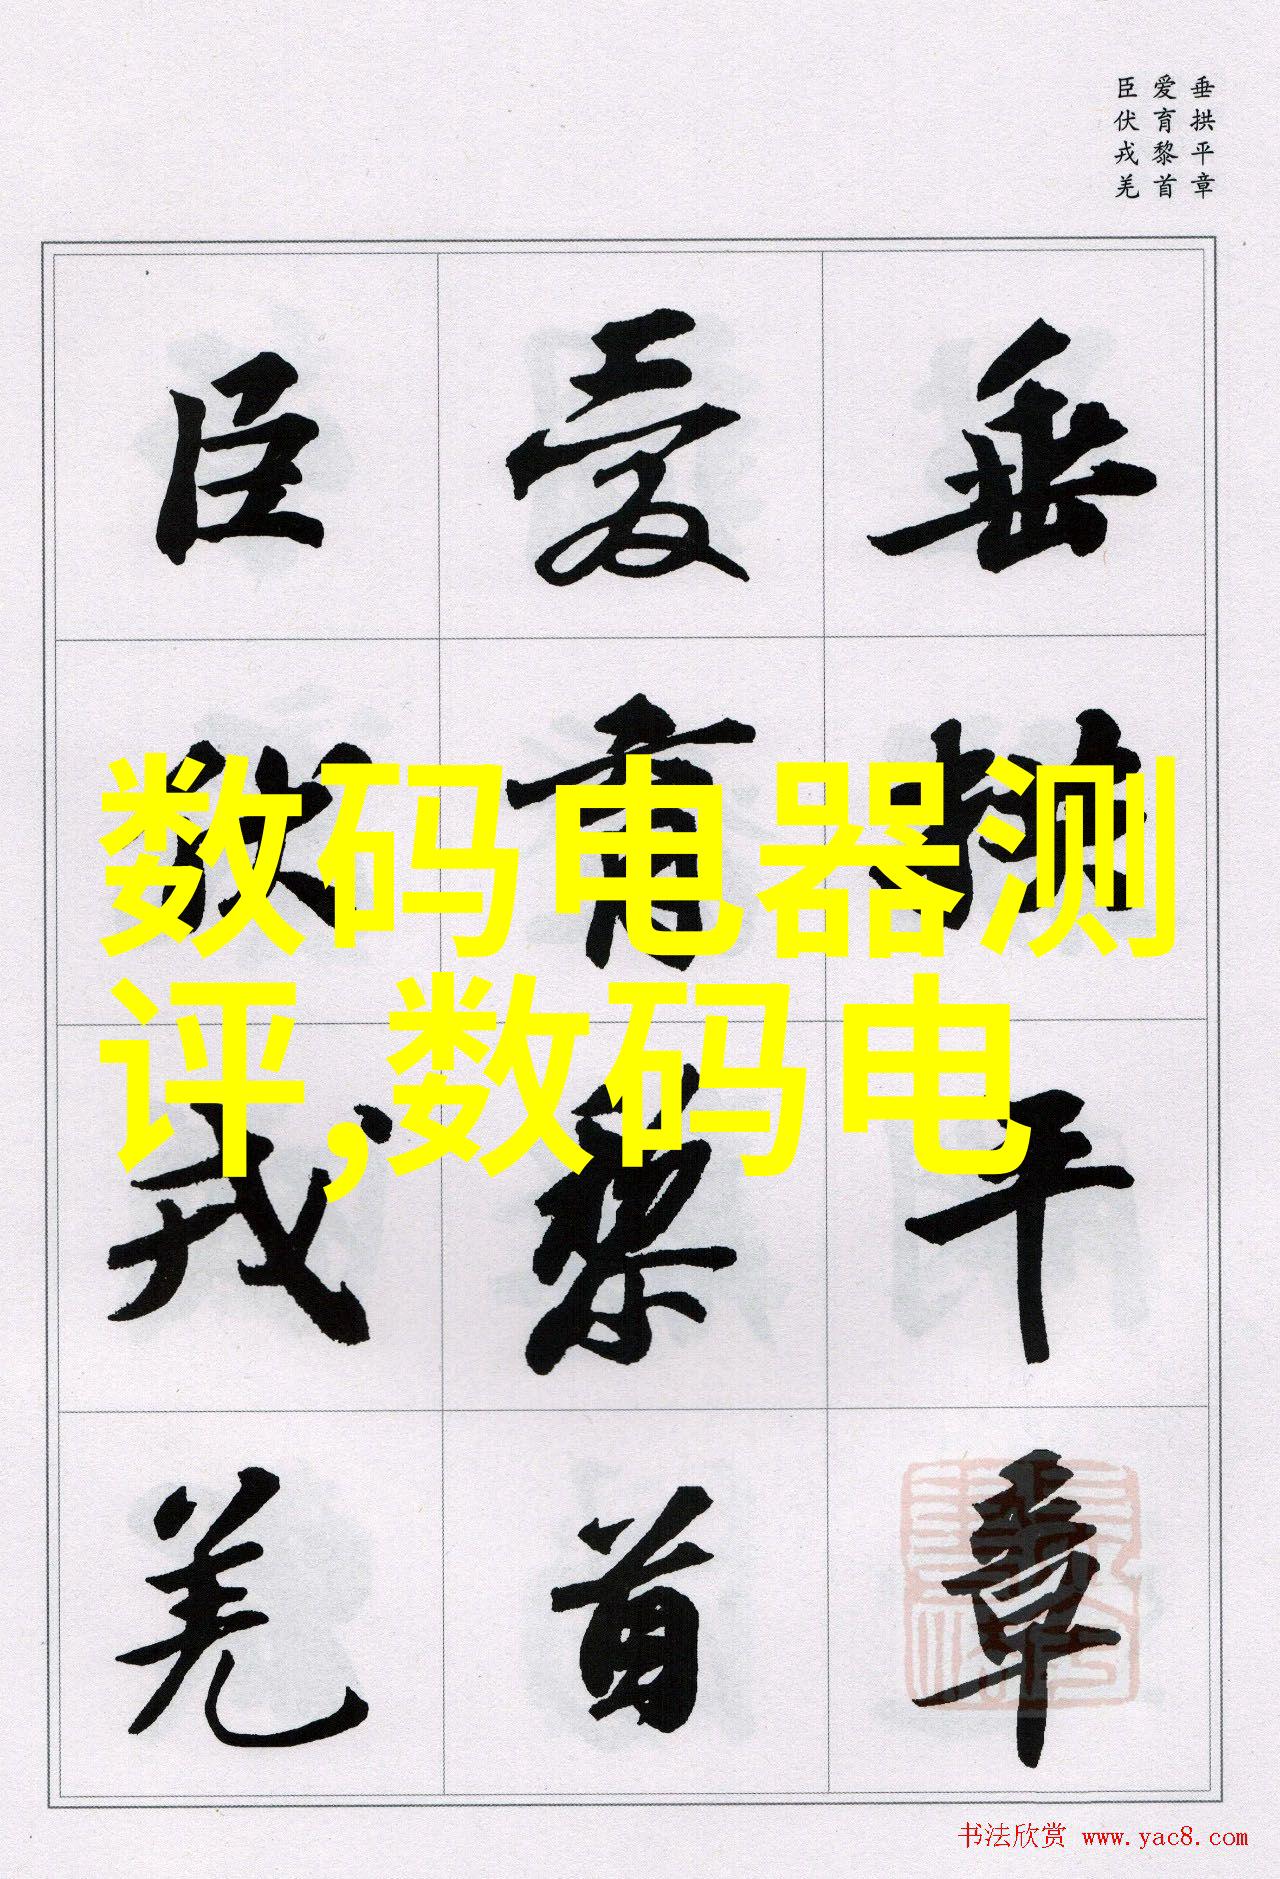 垂拱平章
爱育黎首
臣伏戎羌
垂拱平章
爱育黎首
臣伏戎羌
数码电器测
评,数码电
书法欣赏 www.yac8.com